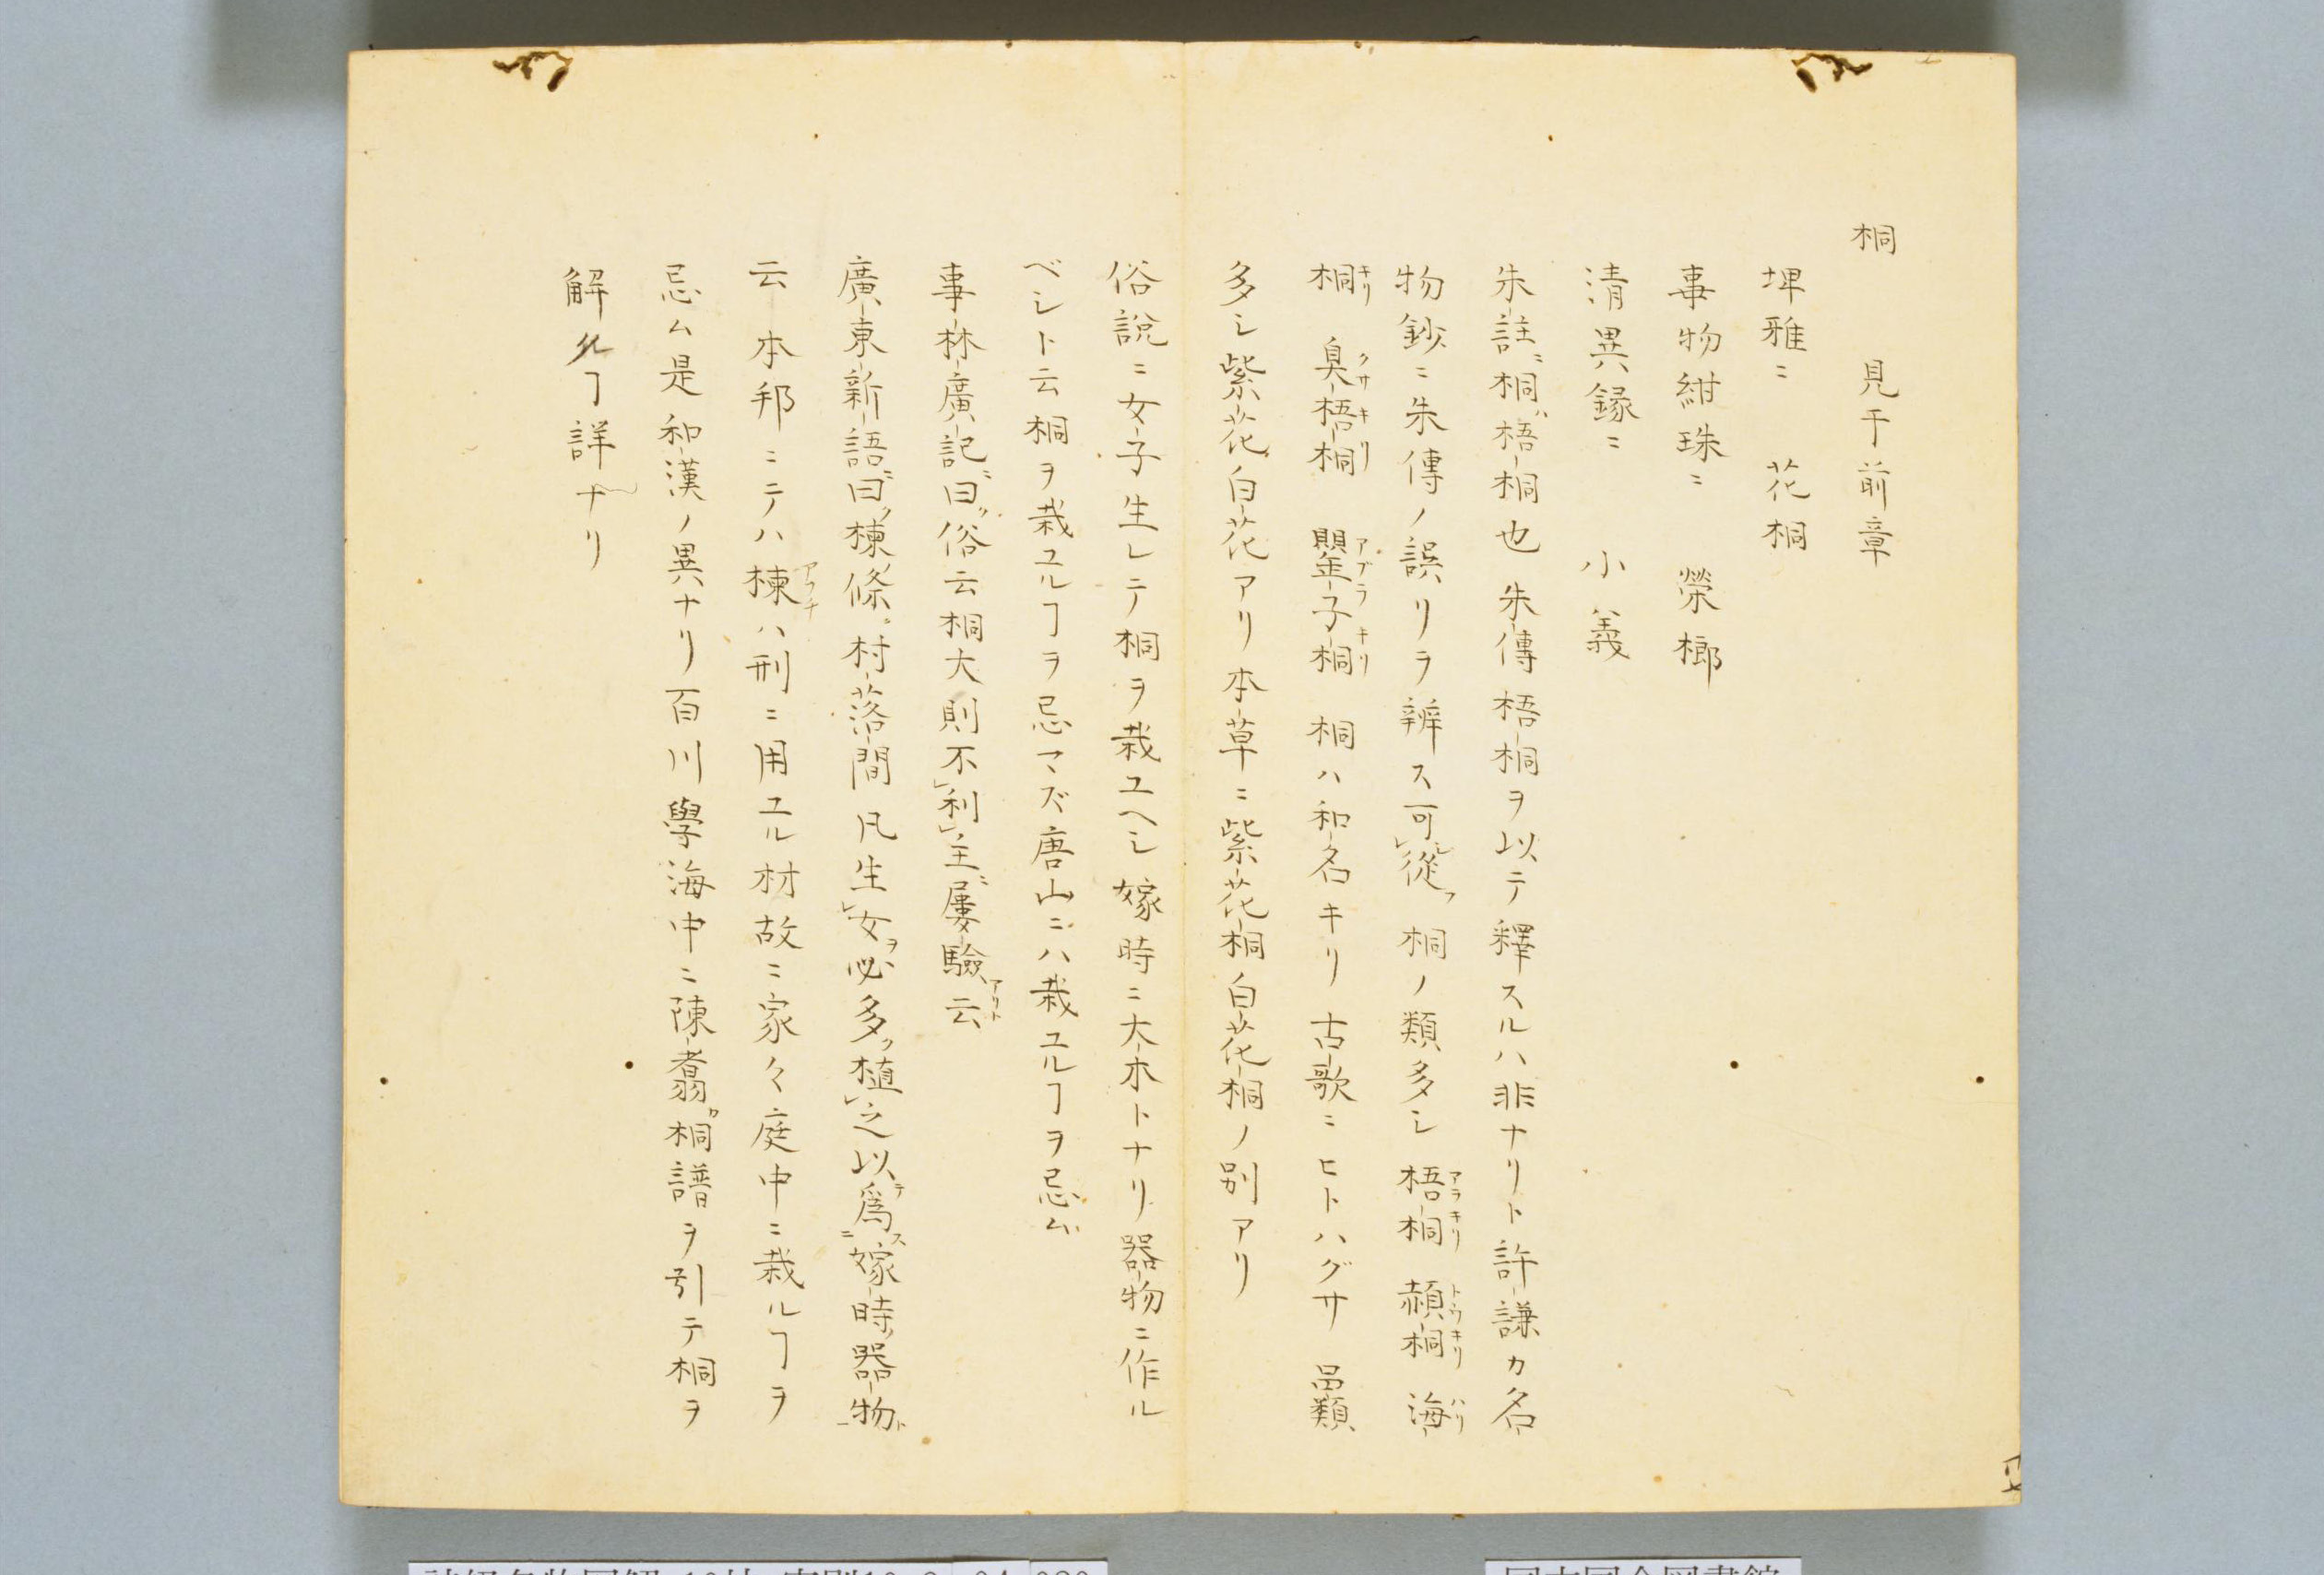 桐　見于前章
埤雅ニ　花桐
事物紺珠ニ　榮榔
清異録ニ　小義
朱註ニ桐ハ梧桐也　朱傳梧桐ヲ以テ釋スルハ非ナリト許謙カ名
物鈔ニ朱傳ノ誤リヲ辨ス可レ從フ　桐ノ類多シ　梧桐アヲキリ　赬桐トウキリ　海ハリ
桐キリ　臭梧桐クサキリ　罌子桐アブラキリ　桐ハ和名キリ　古歌ニヒトハグサ　品類
多シ紫花白花アリ　本草ニ紫花桐白花桐ノ別アリ
俗說ニ女子生レテ桐ヲ栽ユヘシ嫁時ニ大木トナリ器物ニ作ル
ベシト云桐ヲ栽ユルヿヲ忌マズ唐山ニハ栽ユルヿヲ忌ム
事林廣記ニ曰ク俗云桐大則不レ利レ主ニ屢驗アリト云
廣東新語ニ曰ク楝條ニ村落間凡生レ女ヲ必多ク植レ之以テ爲ス二嫁時ノ器物ト一
云　本邦ニテハ楝アフチハ刑ニ用ユル材故ニ家々庭中ニ栽ルヿヲ
忌ム是和漢ノ異ナリ百川學海中ニ陳翥カ桐譜ヲ引テ桐ヲ
解スルヿ詳ナリ